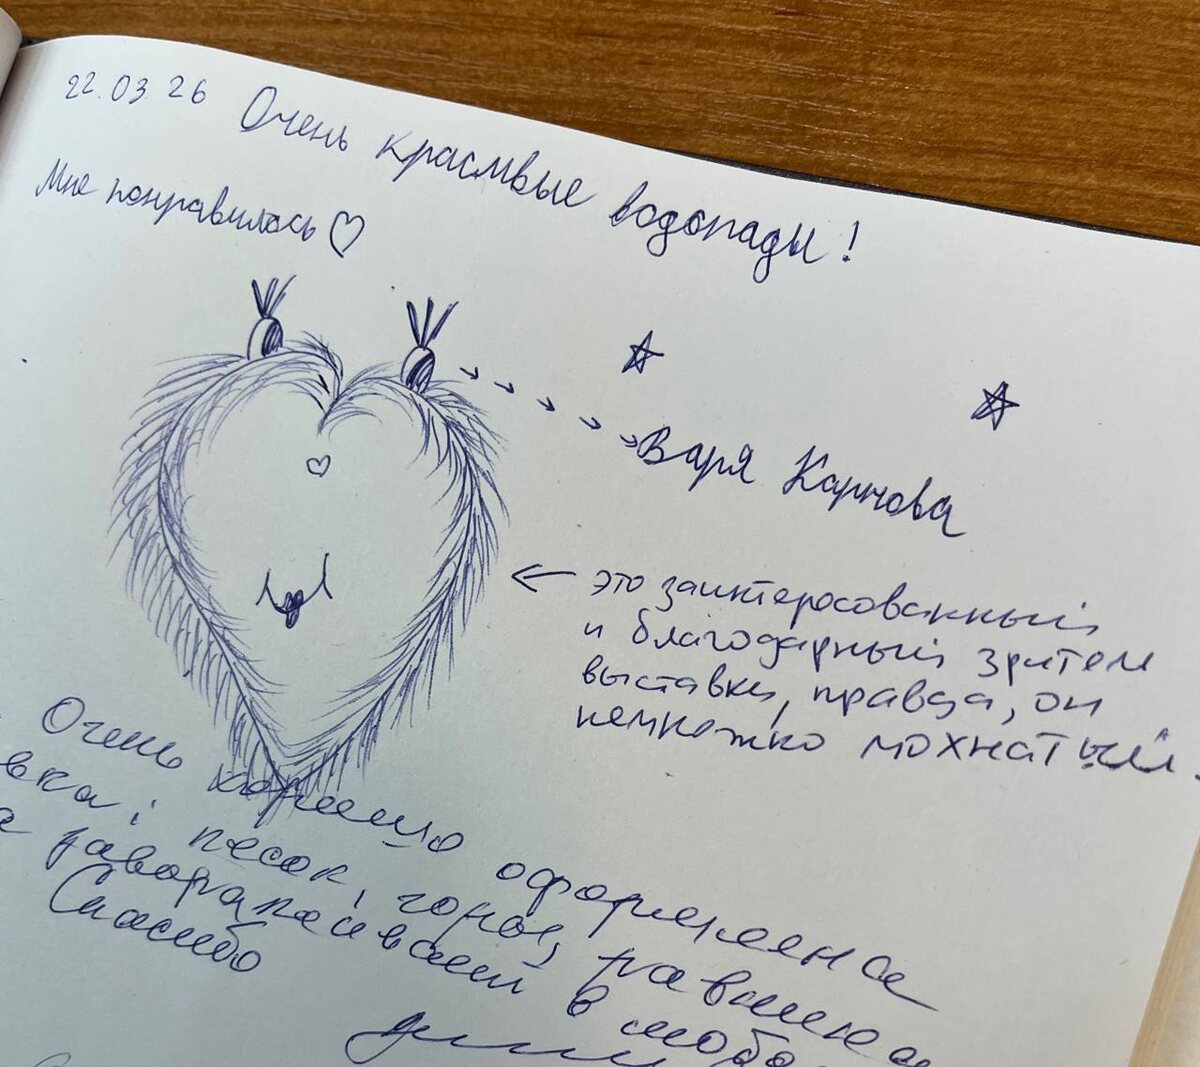 22.03.26 Очень красивые водопады!
Мне понравилось ♡
Варя Карпова
это заинтересованный
и благодарный зритель
выставки, правда, он
немножко мохнатый.
Очень хорошо оформлена
вка: песок, горы, равнина
завораживает в
Спасибо